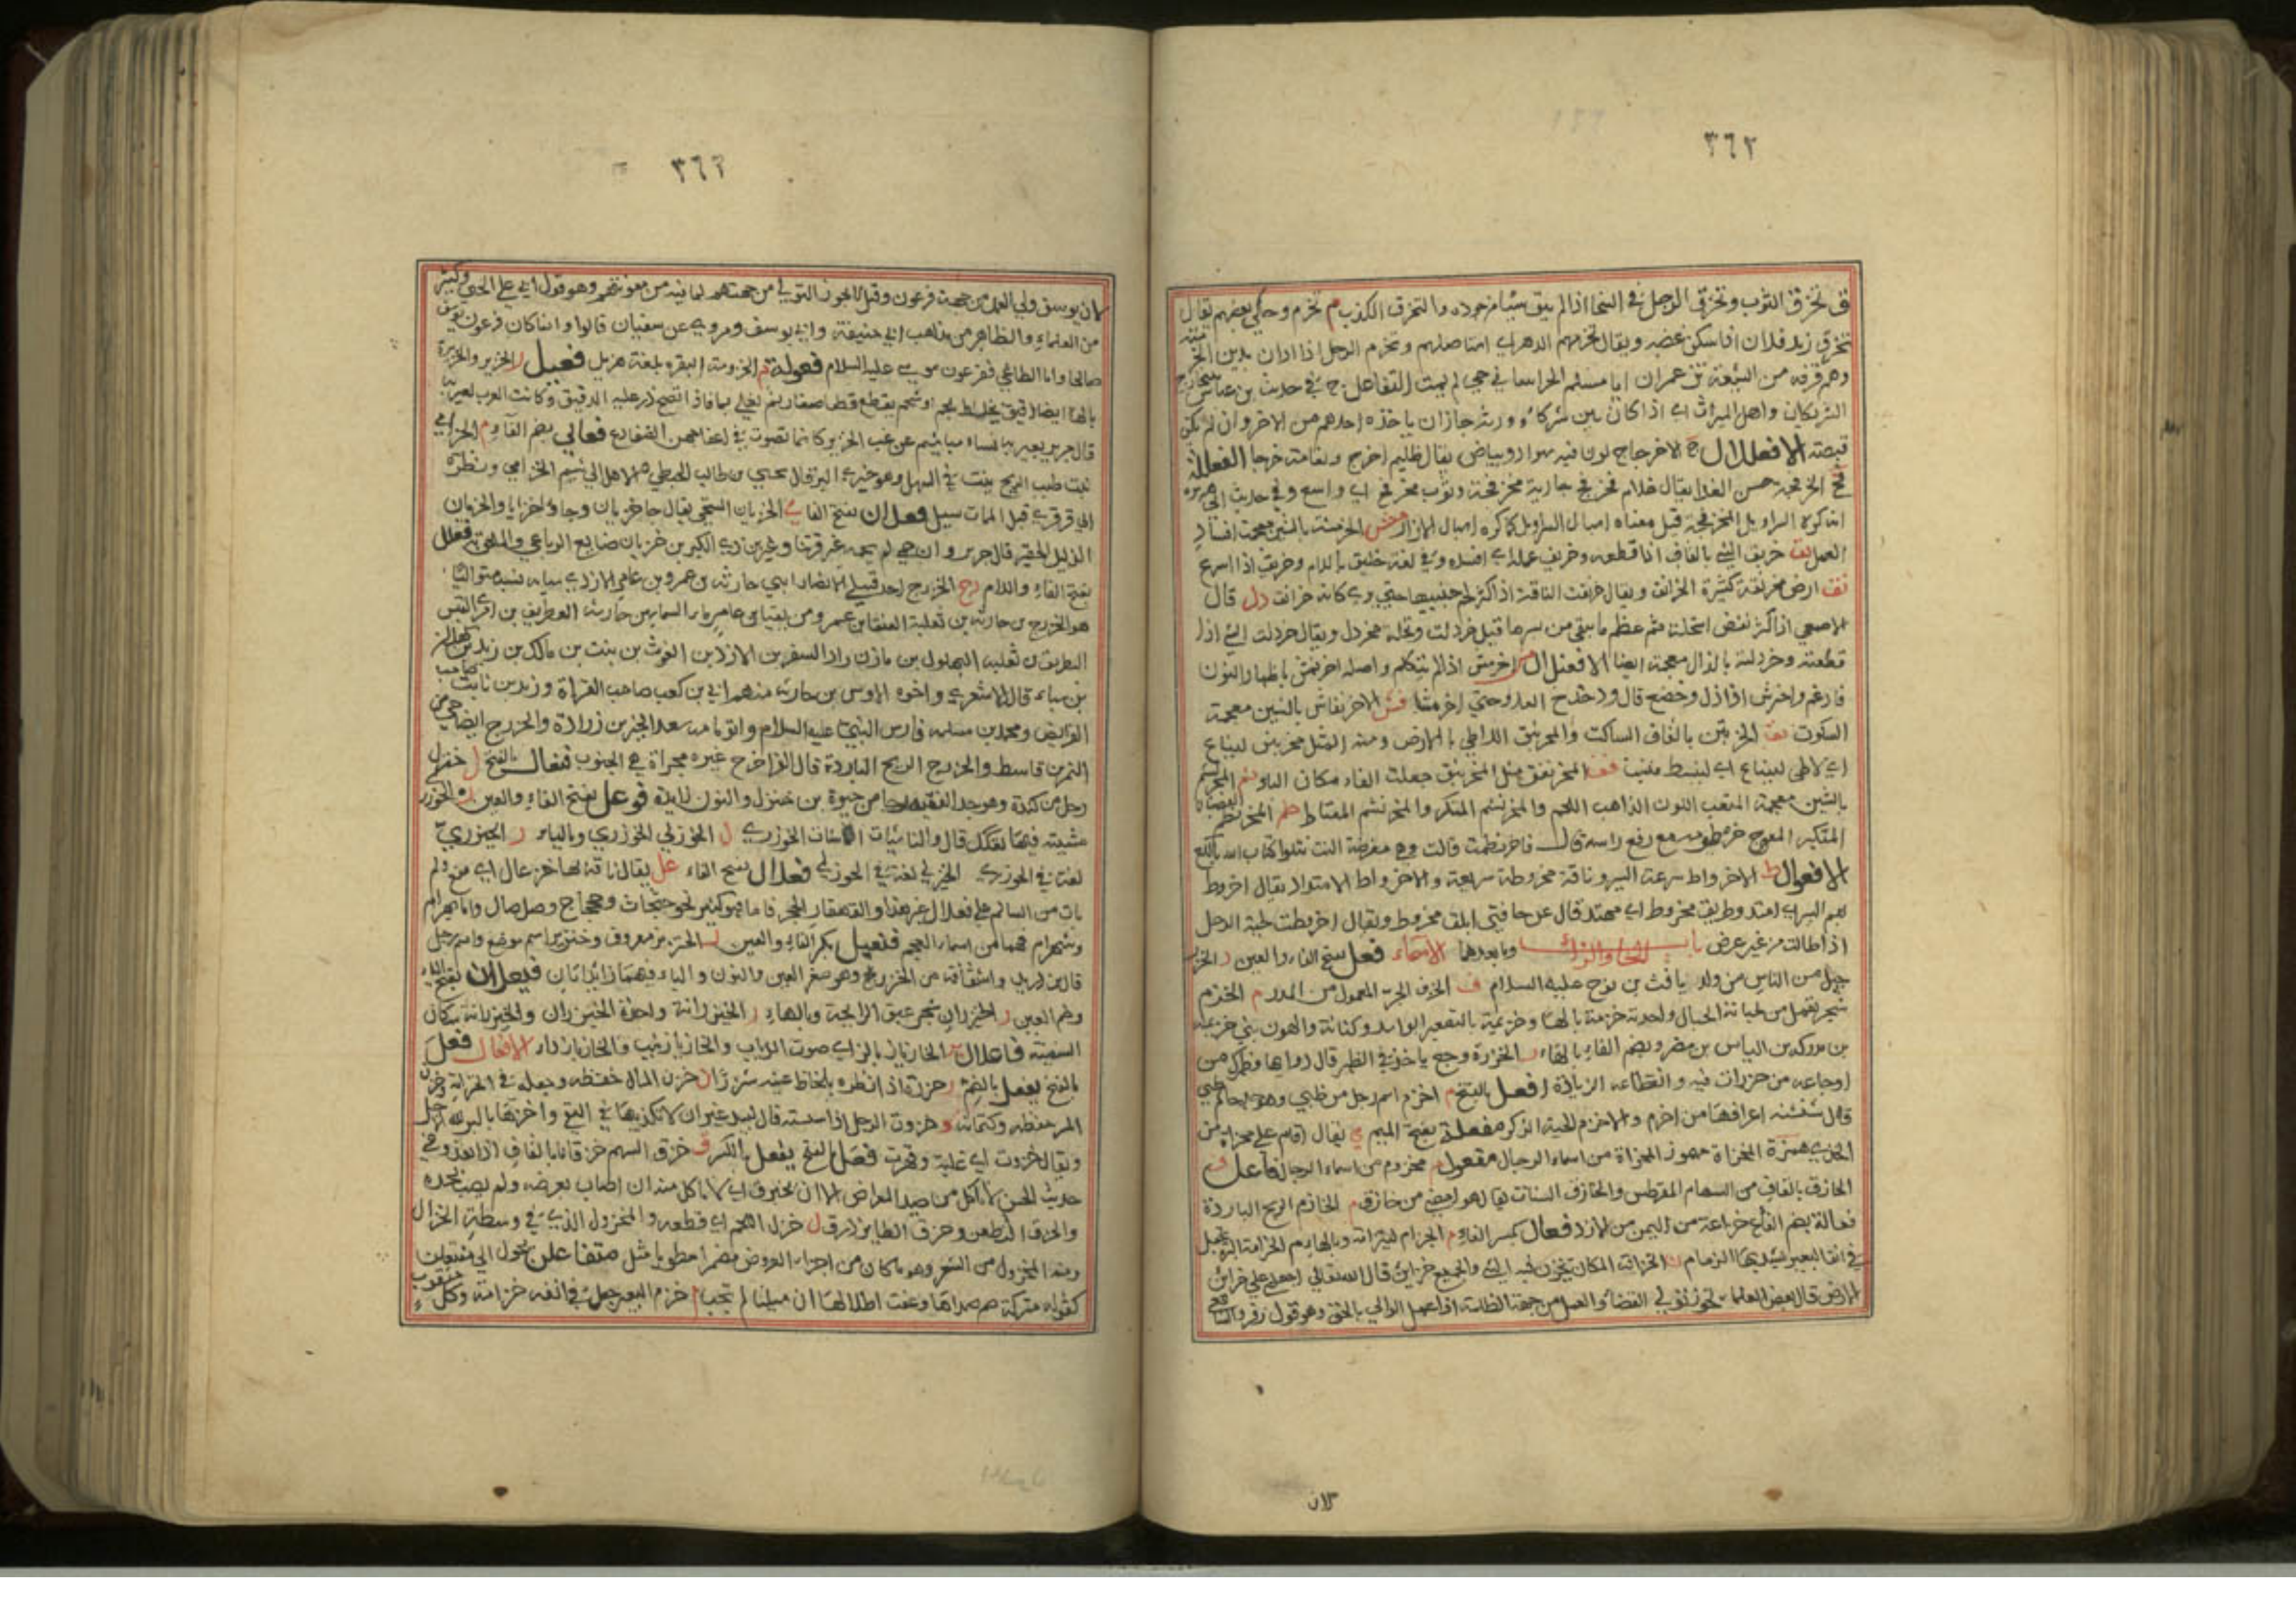 ٣٦٢
ق تخرق الثوب وتخرق الرجل في السخاء اذا لم يبق شيئا من جوده والتخرق الكذب م تخرم وحكى بعضهم يقال
تخرم زيد فلان اذا سكن غضبه ويقال تخرمهم الدهر اي استاصلهم وتخرم الرجل اذا دان بدين الخرمية
وهم فرقة من الشيعة عمران ابا مسلم الخراساني حي لم يمت التفاعل ج في حديث بن عباس يتخارج
الشريكان واهل الميراث اي اذا كان بين شركاء ورثة جاز ان ياخذه احدهم من الاخر وان لم يكن
قبضه الافعلال ج الاخرجاج لون فيه سواد وبياض يقال ظليم اخرج ونعامة خرجا الفعللة
فج الخرفجة حسن الغذا يقال غلام مخرفج جارية مخرفجة وثوب مخرفج اي واسع وفي حديث ابي هريرة
انه كره السراويل المخرفجة قيل معناه اسبال السراويل كما كره اسبال الازار مش الخرمشة بالشين معجمة افساد
العمل بق خربق الشيء بالقاف اذا قطعه وخربق عمله اي افسده وفي لغة خلبق باللام وخربق اذا اسرع
نق ارض مخرنقة كثيرة الخرانق ويقال خرنقت الناقة اذا كثر لحم جنبيها حتى يرى كانه خرانق دل قال
الاصمعي اذا كثر نفض النخلة ثم عظم ما بقي من بسرها قيل خردلت ونخلة مخردل ويقال خردلت الشيء اذا
قطعته وخردلته بالذال معجمة ايضا الافعنلال س اخرمس اذا لم يتكلم واصله اخرنمس باظهار النون
فادغم واخرمس اذا ذل وخضع قال ودخدخ العدو حتى اخرمسا فش الاخرنفاش بالشين معجمة
السكوت بق المخرنبق بالقاف الساكت والمخرنبق اللاطي بالارض ومنه المثل مخرنبق لينباع
اي لاطي لينباع اي لينبسط فق المخرنفق مثل المخرنبق جعلت الفاء مكان الباء شم المخرنشم
بالشين معجمة المتغير اللون الذاهب اللحم والمخرنشم المتكبر والمخرنشم المغتاظ طم المخرنطم الغضبان
المتكبر المعوج خرطومه مع رفع راسه قال فاخرنطمت قالت وهي مغرضة
الافعوال ط الاخرواط سرعة السير وناقة مخروطة سريعة والاخرواط الامتداد يقال اخروط
بهم السير اي امتد وطريق مخروط اي ممتد قال عن حافتي ابلق مخروط ويقال اخروطت لحية الرجل
اذا طالت من غير عرض باب الخاء والزاي وما بعدها الاسماء فعل بفتح الفاء والعين ر الخزر
جيل من الناس من ولد يافث بن نوح عليه السلام ف الخزف الجر المعمول من المدر م الخزم
شجر تعمل من لحيائه الحبال واحدته خزمة بالهاء وخزيمة بالتصغير ابو اسد وكنانة والهون بني خزيمة
بن مدركة بن الياس بن مضر وبضم الفاء بالهاء ر الخزرة وجع ياخذ في الظهر قال
اوجاعه من خزرات فيه وانقطاعه الزيادة افعل بالفتح م اخزم اسم رجل من طيي وهو جد حاتم طيي
قال شنشنة اعرفها من اخزم والاخزم الحية الذكر مفعلة بفتح الميم ي يقال اقام على مخزاة من
الخزي همزة المخزاة مهموز المجزاة من اسماء الرجال مفعول م مخزوم من اسماء الرجال فاعل ق
الخازق بالقاف من السهام المقرطس والخازق السنان يقال هو امضى من خازق م الخازم الريح الباردة
فعالة بضم الفاء ع خزاعة من اليمن من الازد فعال بكسر الفاء م الخزام لغة وبالهاء م الخزامة التي تجعل
في انف البعير يشد بها الزمام ن الخزانة المكان يخزن فيه الشيء والجميع خزاين قال الله تعالى اجعلني على خزاين
الارض قال بعض العلماء يجوز تولي القضاء والعمل من جهة الظلمة اذا عمل الوالي بالحق وهو قول زفر والشافعي
لان
٣٦٣
لان يوسف ولي العمل من جهة فرعون وقيل لا يجوز التولي من جهتهم لما فيه من معونتهم وهو قول ابي علي الجبائي وكثير
من العلماء والظاهر من مذاهب ابي حنيفة وابي يوسف ومروي عن سفيان قالوا وانما كان فرعون يوسف
صالحا واما الطاغي ففرعون موسى عليه السلام فعولة م الخزومة البقرة بلغة هذيل فعيل ر الخزير والخزيرة
بالهاء ايضا دقيق يخلط بلحم او شحم يقطع قطعا صغارا ثم يغلى بماء فاذا نضج ذر عليه الدقيق وكانت العرب تعير به
قال جرير يعير به نساء مجاشع عن غب الخزير كانما تصوت في اعفاجهن الضفادع فعالى بضم الفاء م الخزامى
نبت طيب الريح ينبت في السهل وهو خيري البر قال يحيى بن طالب الحنظلي الا هل الى شم الخزامى ونظرة
الى قرقرى قبل الممات سبيل فعلان بفتح الفاء ي الخزيان المستحي يقال جا خزيان وجاؤا خزايا والخزيان
الذليل الحقير قال جرير وان حمى لم يحمه غير فرتنا وغير بن ذي الكيرين خزيان ضايع الرباعي والملحق به فعلل
بفتح الفاء واللام رج الخزرج احد قبيلي الانصار ابني حارثة بن عمرو بن عامر الازدي
هو الخزرج بن حارثة بن ثعلبة العنقا بن عمرو مزيقيا بن عامر ماء السما بن حارثة الغطريف بن امرئ القيس
البطريق بن ثعلبة البهلول بن مازن زاد السفر بن الازد بن الغوث بن نبت بن مالك بن زيد بن كهلان
بن سباء قال الاشعري واخوه الاوس بن حارثة منهم ابي بن كعب صاحب القراة وزيد بن ثابت صاحب
الفرايض ومحمد بن مسلمة فارس النبي عليه السلام واسعد الخير بن زرارة والخزرج ايضا حي من
النمر بن قاسط والخزرج الريح الباردة قال الفرا خزرج غير مجراة هي الجنوب فنعال بالفتح ل خنزل
رجل من كندة وهو جد الفقيه رجا بن حيوة بن خنزل والنون زايدة فوعل بفتح الفاء والعين ر الخوزرى
مشية فيها تفكك قال والناشيات الماشيات الخوزرى ل الخوزلى الخوزرى وبالياء ر الخيزرى
لغة في الخوزرى الخيزلى لغة في الخوزلى فعلال بفتح الفاء عل يقال ناقة بها خزعال اي ضلع ولم
يات من السالم على فعلال غير هذا والقهقار الحجر فاما فيه كثير نحو جثجاث وحجاج وصلصال واما بهرام
وشهرام فهما من اسماء العجم فنعيل بكسر الفاء والعين ر الخنزير معروف وخنزير اسم موضع واسم رجل
قال بن دريد واشتقاقه من الخزر وهو صغر العين والنون والياء فيهما زايدتان فيعلان بفتح الفاء
وضم العين ر الخيزران شجر عبق الرايحة وبالهاء ر الخيزرانة واحدة الخيزران والخيزرانة سكان
السفينة فاعلال ز الخازباز بالزاي صوت الذباب والخازباز نبت والخازباز داء الافعال فعل
بالفتح يفعل بالضم ر خزره اذا نظره بلحاظ عينه شزرا ن خزن المال حفظه وجعله في الخزانة وخزن
السر حفظه وكتمانه و خزوت الرجل اذا سسته قال لبيد غير ان لا تكذبنها في التقى واخزها بالبر لله الاجل
ويقال خزوت اي غلبة وقهرت فعل بالفتح يفعل بالكسر ق خزق السهم خزقا بالقاف اذا نفذ وفي
حديث الحسن لا تاكل من صيد المعراض الا ان يخزق اي لا تاكل منه ان اصاب بعرضه ولم يصب بحده
والخزق الطعن وخزق الطاير ذرق ل خزل اللحم اي قطعه والمخزول الذي في وسطه انخزال
ومنه المخزول من الشعر وهو ما كان من اجزاء العروض مضمرا مطويا مثل متفاعلن يحول الى مفتعلن
كقوله منزلة صم صداها وعفت اطلالها ان سيلت لم تجب م خزم البعير جعل في انفه خزامة وكل مثقوب